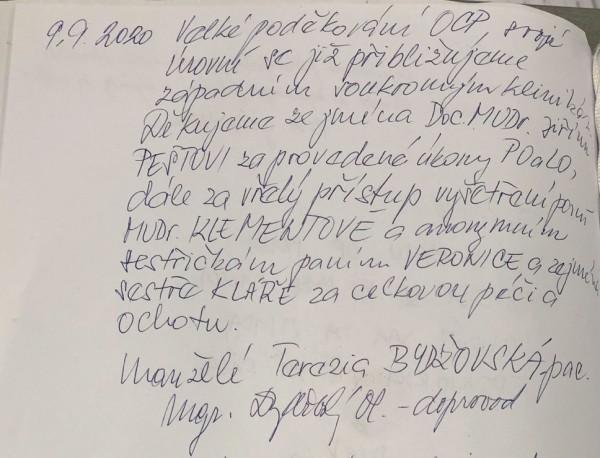 9.9.2020 Velké poděkování OCP svojí
úrovní se již přibližujeme
západním soukromým klinikám.
Děkujeme zejména Doc. MUDr. Jiřímu
PEŠTOVI za provedené úkony POaLO,
dále za vřelý přístup vyšetření paní
MUDr. KLEMENTOVÉ a anonymním
sestřičkám paním VERONICE a zejména
sestře KLÁŘE za celkovou péči a
ochotu.
Manželé Terezia BYDŽOVSKÁ-pac.
Mgr. - doprovod